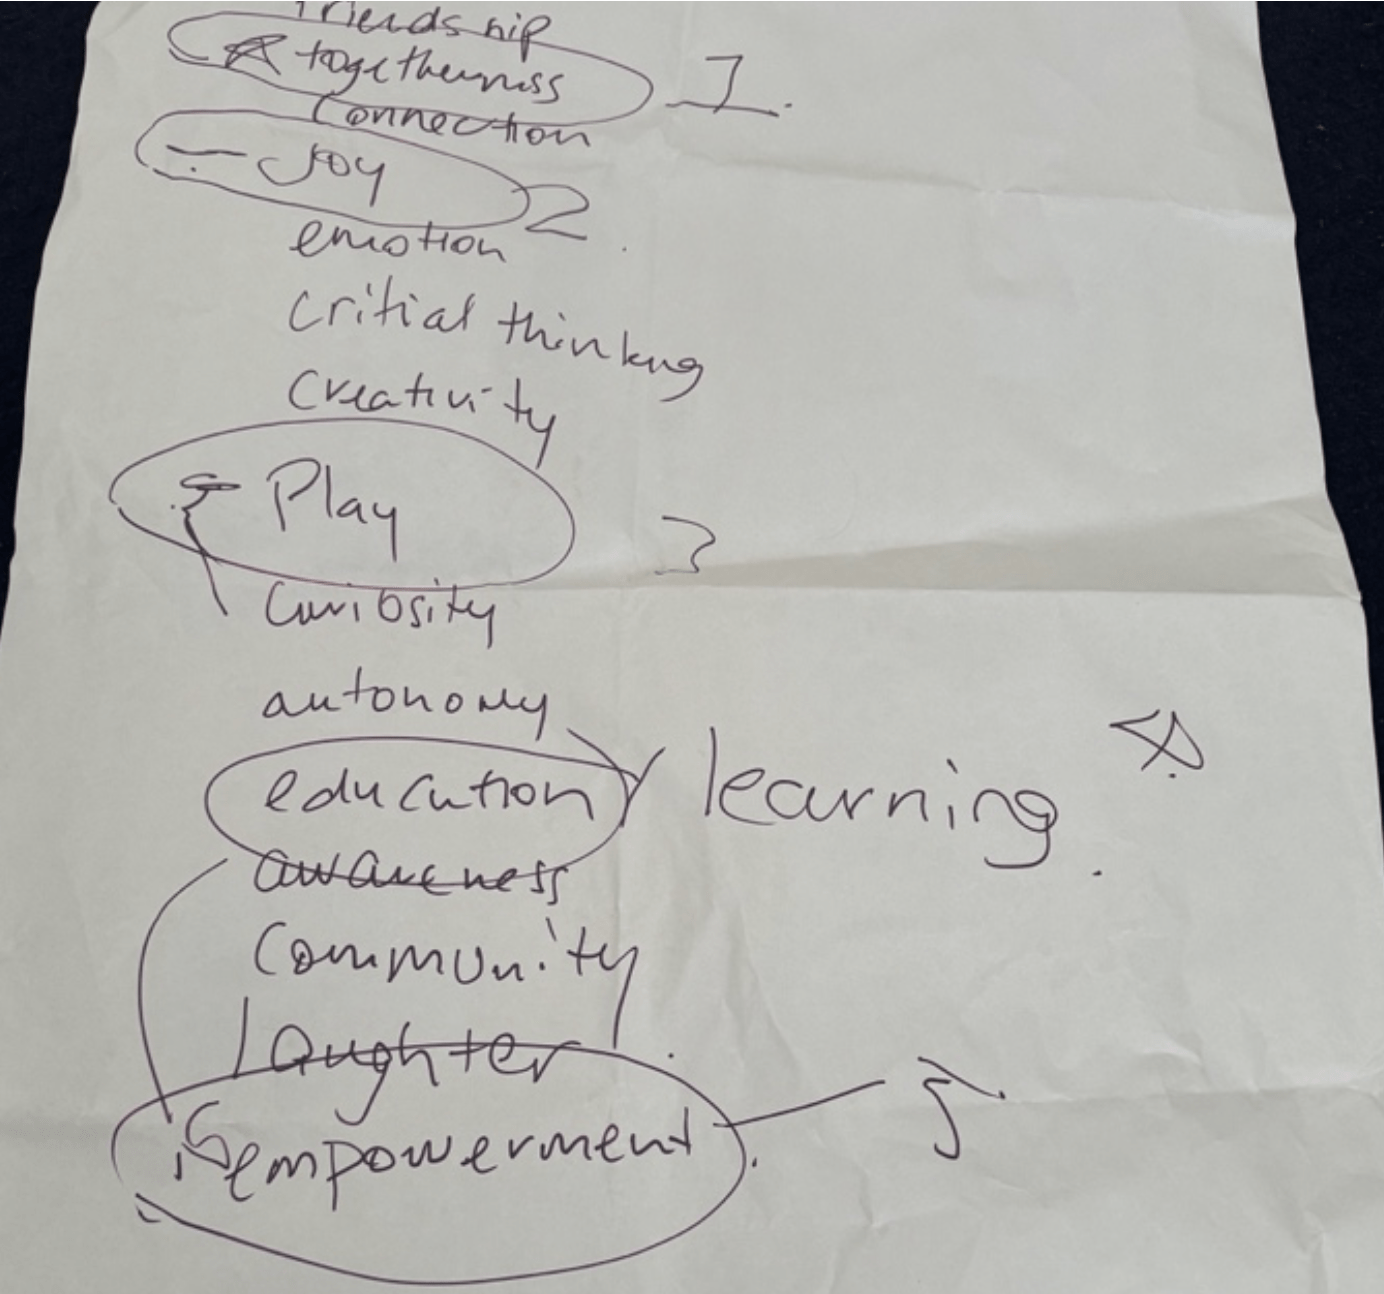 friendship
togetherness 1.
Connection
- Joy 2.
emotion
critial thinking
Creativity
Play 3
Curiosity
autonomy
education learning 4.
awareness
Community
laughter
empowerment 5.